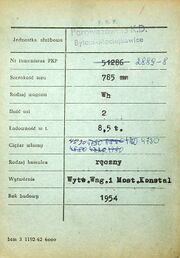 P. K. P.
Parowozownia K.D.
Jednostka służbowa
Nr inwentarza PKP 51286 2889-8
Szerokość toru 785 mm
Rodzaj wagonu Wh
Ilość osi 2
Ładowność w t. 8,5 t.
Ciężar własny 4780
Rodzaj hamulca ręczny
Wytwórnia Wytw.Wag.i Most.Konstal
Rok budowy 1954
bzm 3 1192-62 6000